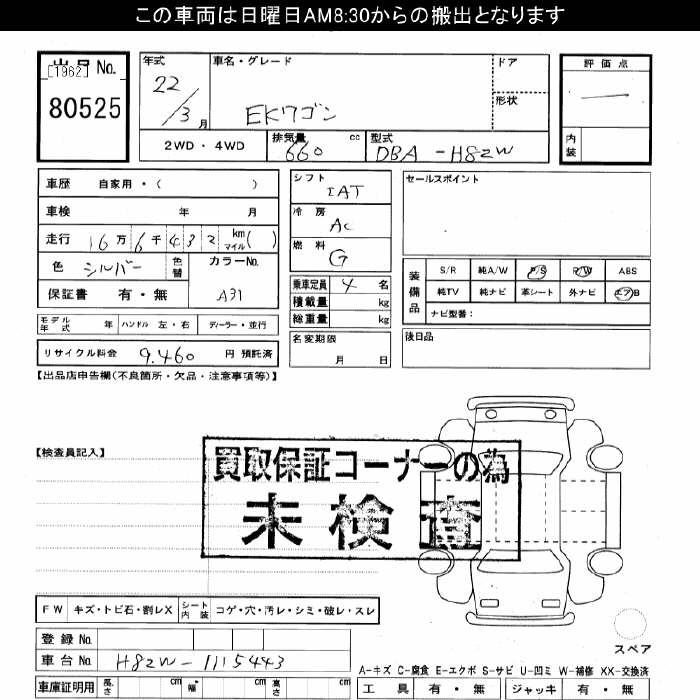 この車両は日曜日AM8:30からの搬出となります
出品 No.
[1962]
80525
年式
22/3 月
車名・グレード
EKワゴン
ドア
形状
評価点
―
内装
2WD・4WD
排気量 660 cc
型式 DBA-H82W
車歴 自家用・( )
車検 年 月
走行 16万6千432 km マイル( )
色 シルバー 色替
カラーNo. A31
保証書 有・無
シフト IAT
冷房 AC
燃料 G
乗車定員 4 名
積載量 kg
総重量 kg
名変期限 月 日
セールスポイント
装備品
S/R 純A/W P/S P/W ABS
純TV 純ナビ 革シート 外ナビ エアB
ナビ型番:
後日品
モデル年式 年 ハンドル 左・右 ディーラー・並行
リサイクル料金 9,460 円 預託済
【出品店申告欄(不良箇所・欠品・注意事項等)】
【検査員記入】
買取保証コーナーの為
未検査
FW キズ・トビ石・割レX シート内装 コゲ・穴・汚レ・シミ・破レ・スレ
登録 No.
車台 No. H82W-1115443
車庫証明用 長さ cm 幅 cm 高さ cm
スペア
A-キズ C-腐食 E-エクボ S-サビ U-凹ミ W-補修 XX-交換済
工具 有・無 ジャッキ 有・無